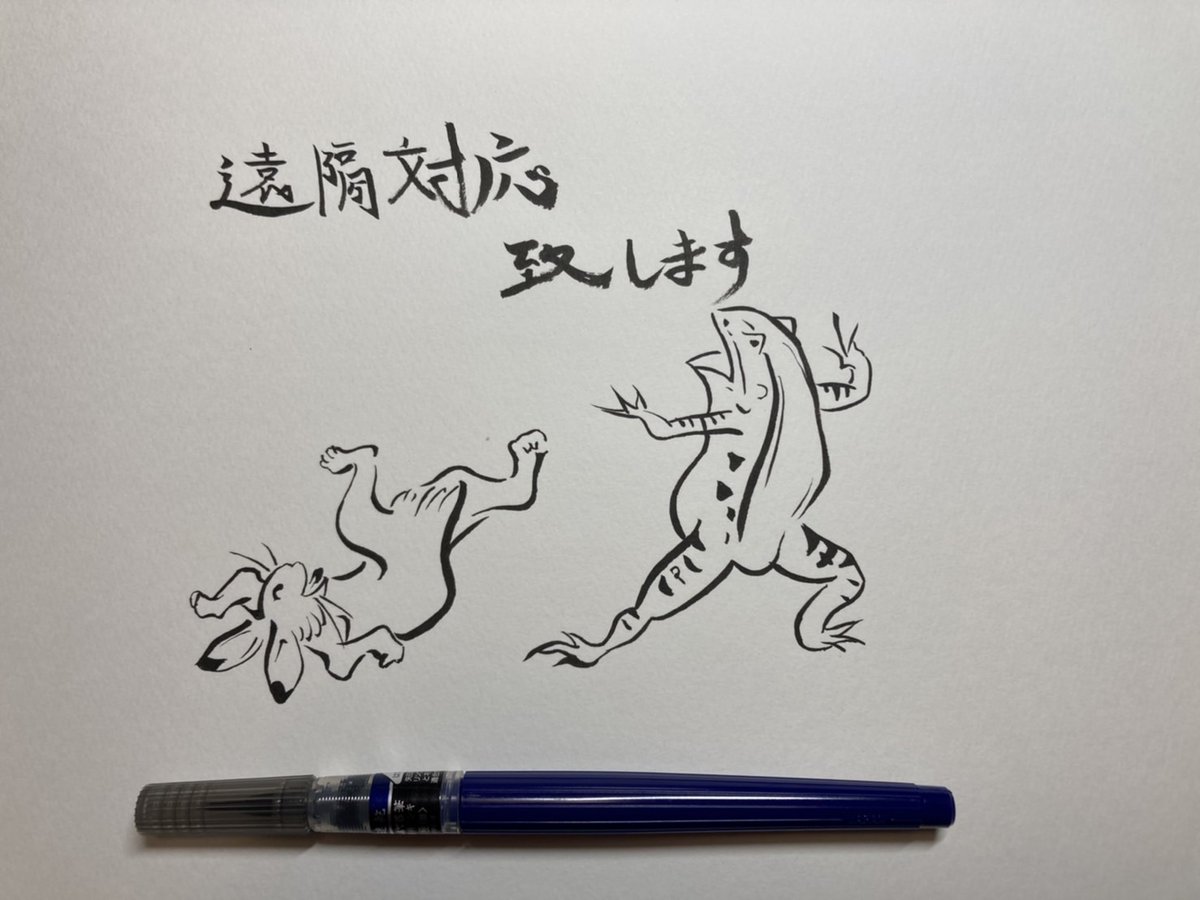 遠隔対応
致します
筆